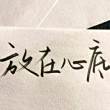 放在心底